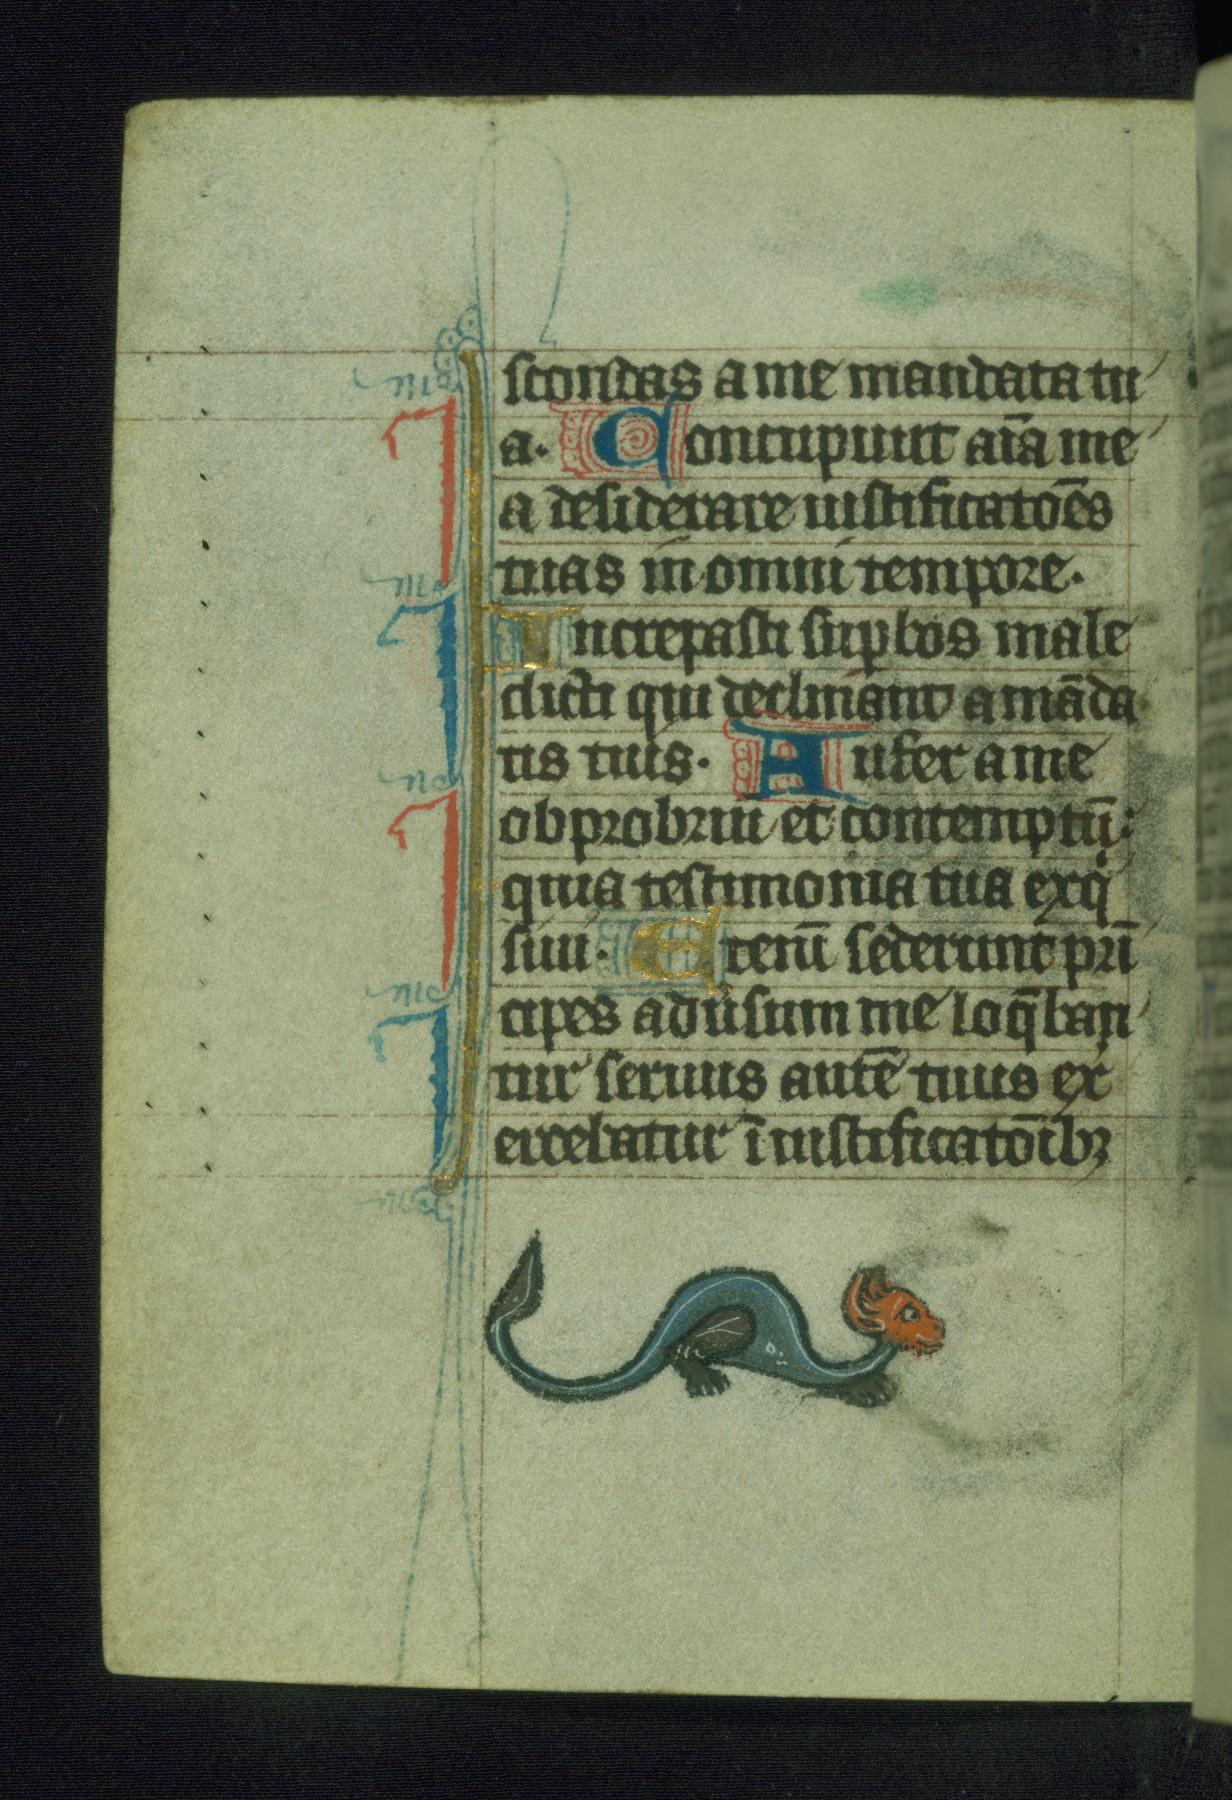 scondas a me mandata tu
a. Concupiuit aīa me
a desiderare iustificatōēs
tuas in omni tempore.
Increpasti suꝑbos male
dicti qui declinant a māda
tis tuis. Aufer a me
obprobriū et contemptū:
quia testimonia tua exqͥ
siui. Etenī sederunt prī
cipes aduersum me loq̄ban
tur seruus autē tuus ex
ercebatur ī iustificatōībꝫ